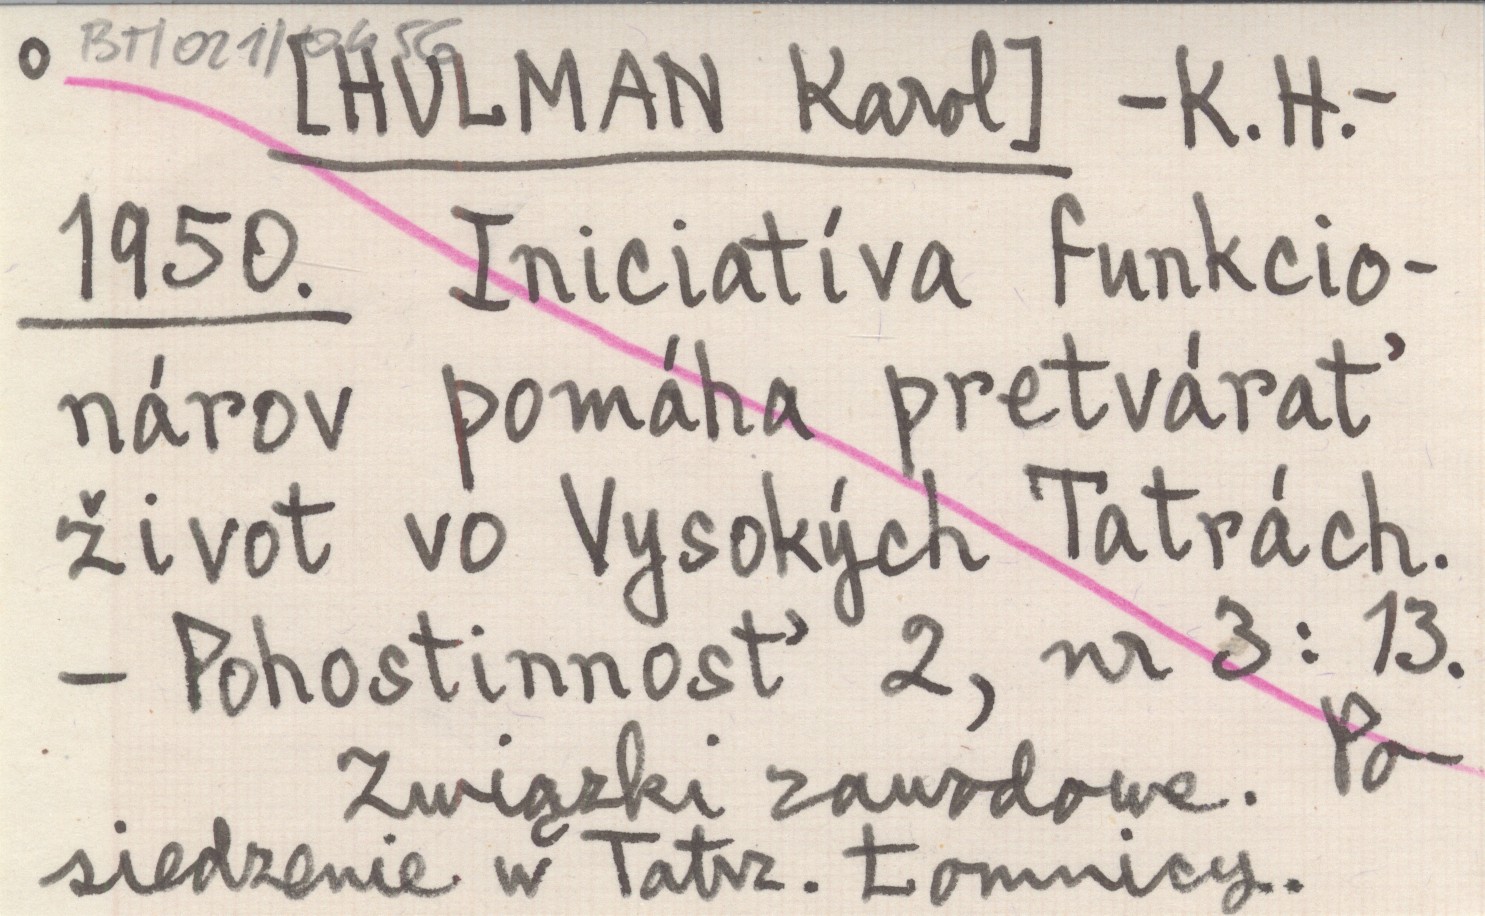 o BT/021/0456
[HULMAN Karol] -K.H.-
1950. Iniciatíva funkcio-
nárov pomáha pretvárať
život vo Vysokých Tatrách.
- Pohostinnosť 2, nr 3: 13.
Związki zawodowe. Po-
siedzenie w Tatrz. Łomnicy.